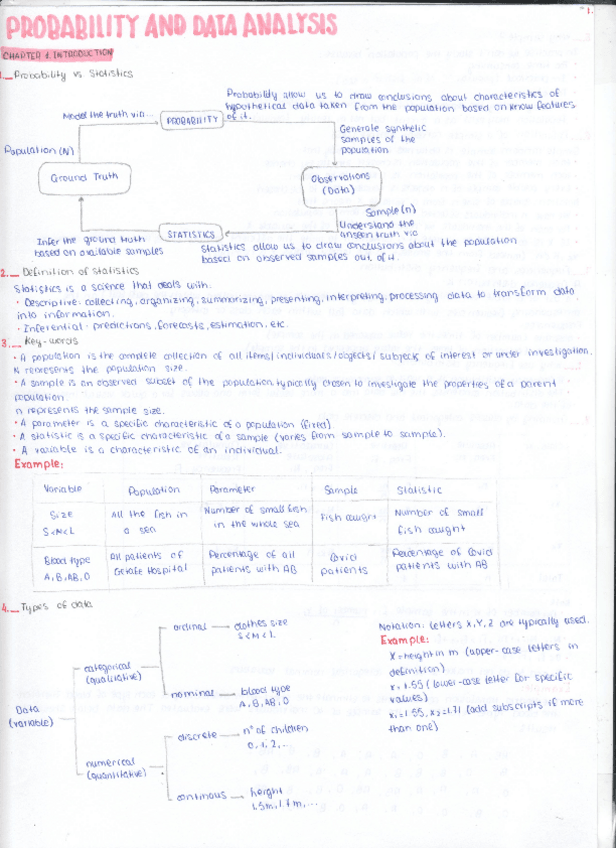 1.
PROBABILITY AND DATA ANALYSIS
CHAPTER 1. INTRODUCTION
1._ Probability vs Statistics
Probability allow us to draw conclusions about characteristics of
hypothetical data taken from the population based on know features
of it.
Model the truth via...
PROBABILITY
Generate synthetic
samples of the
population
Population (N)
Ground Truth
Observations
(Data)
Sample (n)
Understand the
unseen truth via
STATISTICS
Infer the ground truth
based on available samples
Statistics allow us to draw conclusions about the population
based on observed samples out of it.
2._ Definition of statistics
Statistics is a science that deals with.
· Descriptive: collecting, organizing, summarizing, presenting, interpreting, processing data to transform data
into information.
· Inferential: predictions, forecasts, estimation, etc.
3._ Key-words
· A population is the complete collection of all items/individuals/objects/ subjects of interest or under investigation.
N represents the population size.
· A sample is an observed subset of the population typically chosen to investigate the properties of a parent
population.
n represents the sample size.
· A parameter is a specific characteristic of a population (fixed)
· A statistic is a specific characteristic of a sample (varies from sample to sample).
· A variable is a characteristic of an individual.
Example:
Variable Population Parameter Sample Statistic
Size
S<M<L
All the fish in
a sea
Number of small fish
in the whole sea
Fish caught
Number of small
fish caught
Blood type
A, B, AB, O
All patients of
Getafe Hospital
Percentage of all
patients with AB
Covid
patients
Percentage of Covid
patients with AB
4._ Types of data
Data
(variable)
categorical
(qualitative)
ordinal
clothes size
S<M<L
nominal
blood type
A, B, AB, O
numerical
(quantitative)
discrete
nº of children
0, 1, 2, ..
continous
height
1.5m, 1.7m, ...
Notation: Letters X, Y, Z are typically used.
Example:
X = height in m (upper-case letters in
definition)
x = 1.55 (lower-case letter for specific
values)
x1 = 1.55, x2 = 1.71 (add subscripts if more
than one)